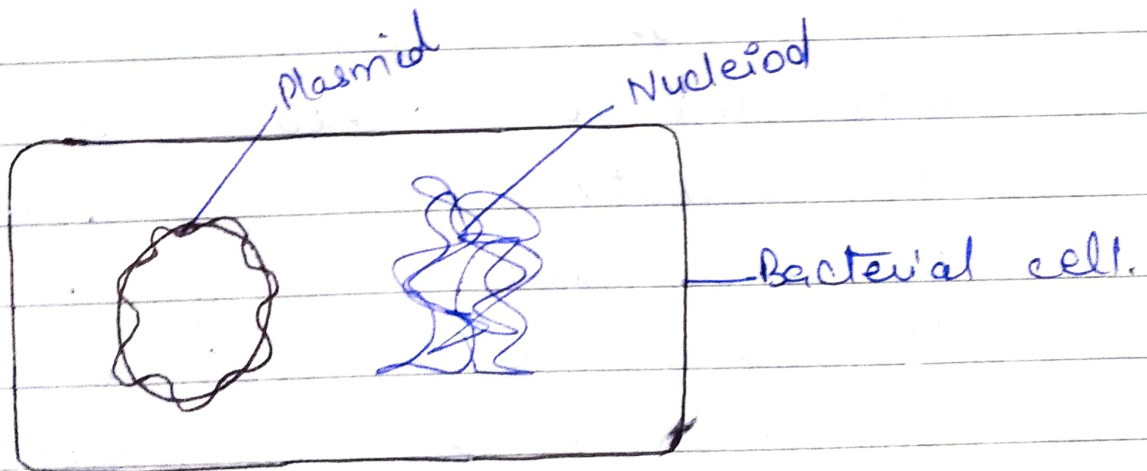 Plasmid
Nucleiod
Bacterial cell.